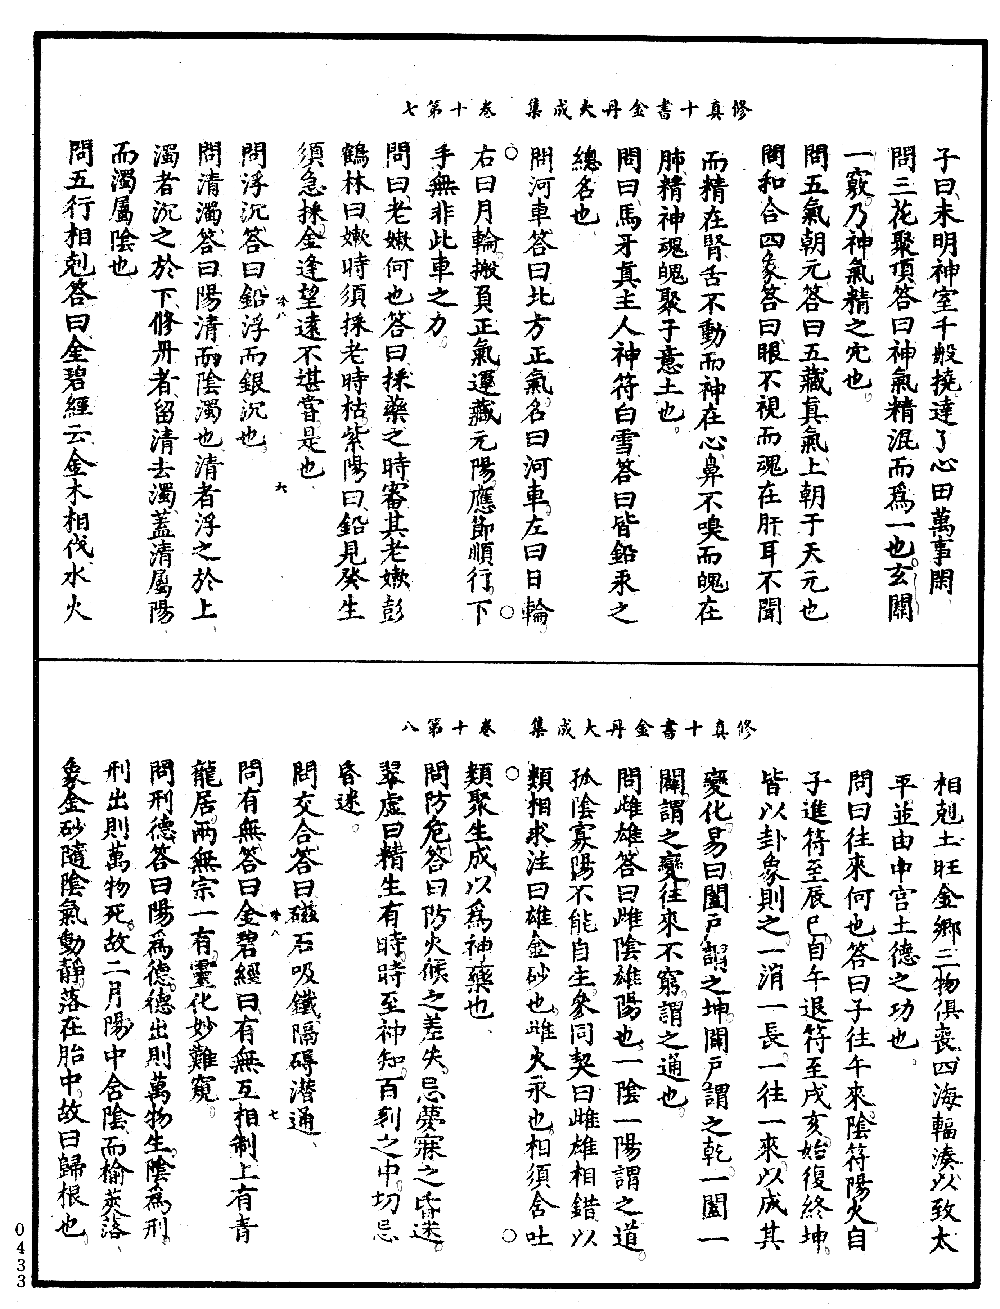 修真十書金丹大成集　卷十第七
子曰未明神室千般撓達了心田萬事閑
問三花聚頂答曰神氣精混而爲一也玄關
一竅乃神氣精之穴也
問五氣朝元答曰五藏真氣上朝于天元也
問和合四象答曰眼不視而魂在肝耳不聞
而精在腎舌不動而神在心鼻不嗅而魄在
肺精神魂魄聚于意土也
問曰馬牙真主人神符白雪答曰皆鉛汞之
總名也
問河車答曰北方正氣名曰河車左曰日輪
右曰月輪搬負正氣運藏元陽應節順行下
手無非此車之力
問曰老嫩何也答曰採藥之時審其老嫩彭
鶴林曰嫩時須採老時枯紫陽曰鉛見癸生
須急採金逢望遠不堪嘗是也
問浮沉答曰鉛浮而銀沉也
問清濁答曰陽清而陰濁也清者浮之於上
濁者沉之於下修丹者留清去濁蓋清屬陽
而濁屬陰也
問五行相剋答曰金碧經云金木相伐水火
修真十書金丹大成集　卷十第八
相剋土旺金鄉三物俱喪四海輻湊以致太
平並由中宫土德之功也
問曰往來何也答曰子往午來陰符陽火自
子進符至辰巳自午退符至戌亥始復終坤
皆以卦象則之一消一長一往一來以成其
變化易曰闔戶謂之坤闢戶謂之乾一闔一
闢謂之變往來不窮謂之通也
問雌雄答曰雌陰雄陽也一陰一陽謂之道
孤陰寡陽不能自生參同契曰雌雄相錯以
類相求注曰雄金砂也雌火汞也相須含吐
類聚生成以爲神藥也
問防危答曰防火候之差失忌夢寐之昏迷
翠虚曰精生有時時至神知百刻之中切忌
昏迷
問交合答曰磁石吸鐵隔碍潛通
問有無答曰金碧經曰有無互相制上有青
龍居兩無宗一有靈化妙難窺
問刑德答曰陽爲德德出則萬物生陰爲刑
刑出則萬物死故二月陽中含陰而榆莢落
象金砂隨陰氣動靜落在胎中故曰歸根也
0433